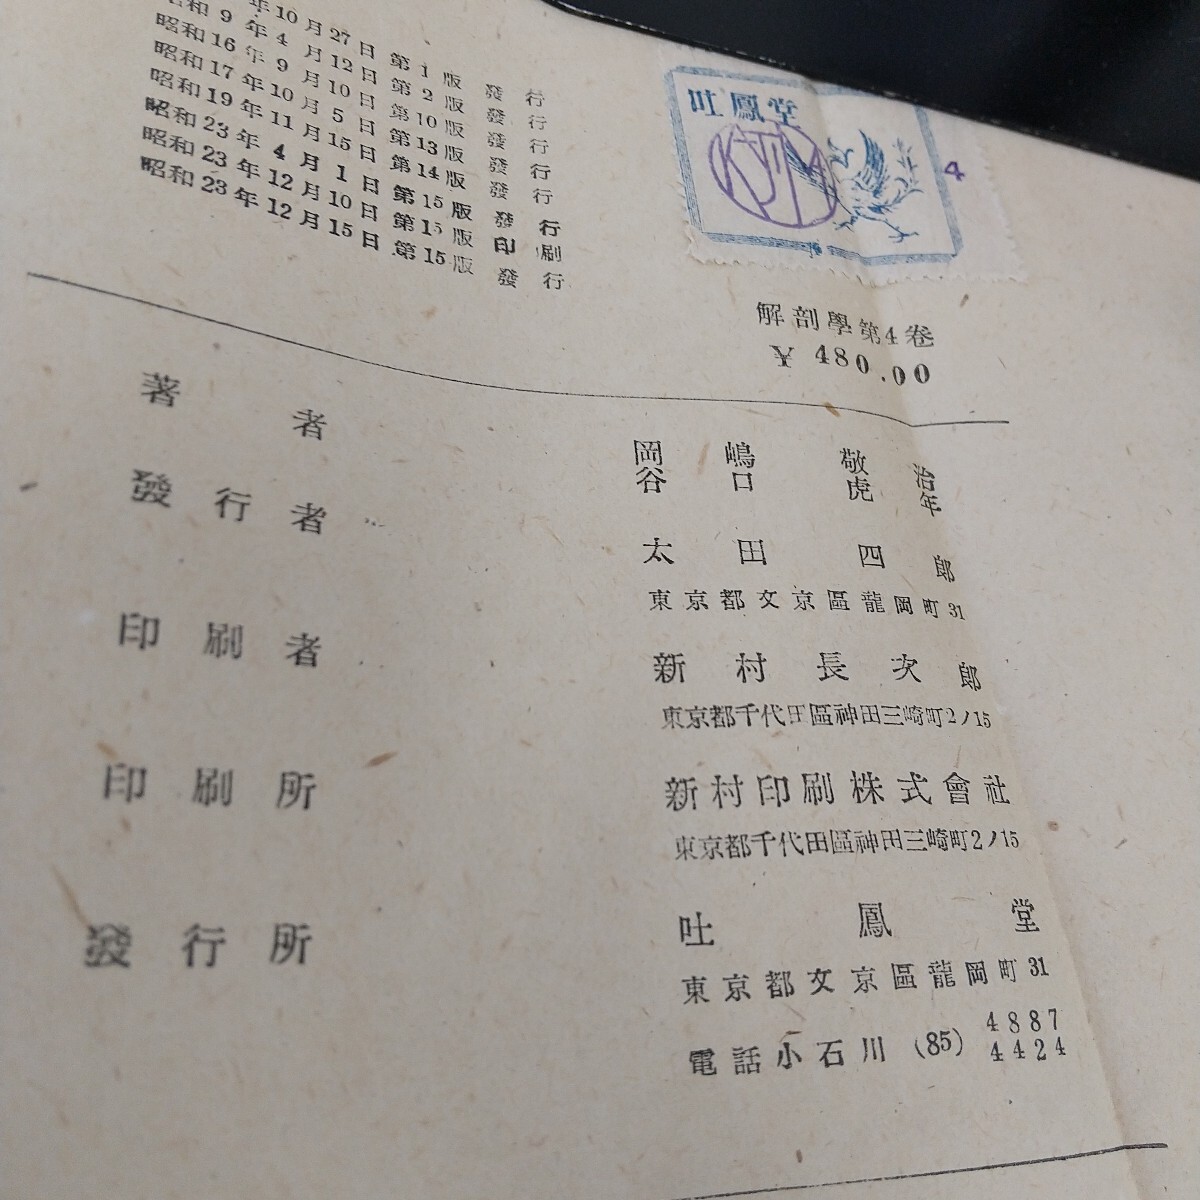 年10月27日 第1版 發行
昭和 9年 4月12日 第2版 發行
昭和16年 9月10日 第10版 發行
昭和17年10月 5日 第13版 發行
昭和19年11月15日 第14版 發行
昭和23年 4月 1日 第15版 發行
昭和23年12月10日 第15版 印刷
昭和23年12月15日 第15版 發行
吐鳳堂
4
解剖學第4卷
¥ 480.00
著者 岡嶋敬治
谷口虎年
發行者 太田四郎
東京都文京區龍岡町31
印刷者 新村長次郎
東京都千代田區神田三崎町2ノ15
印刷所 新村印刷株式會社
東京都千代田區神田三崎町2ノ15
發行所 吐鳳堂
東京都文京區龍岡町31
電話小石川 (85) 4887
4424